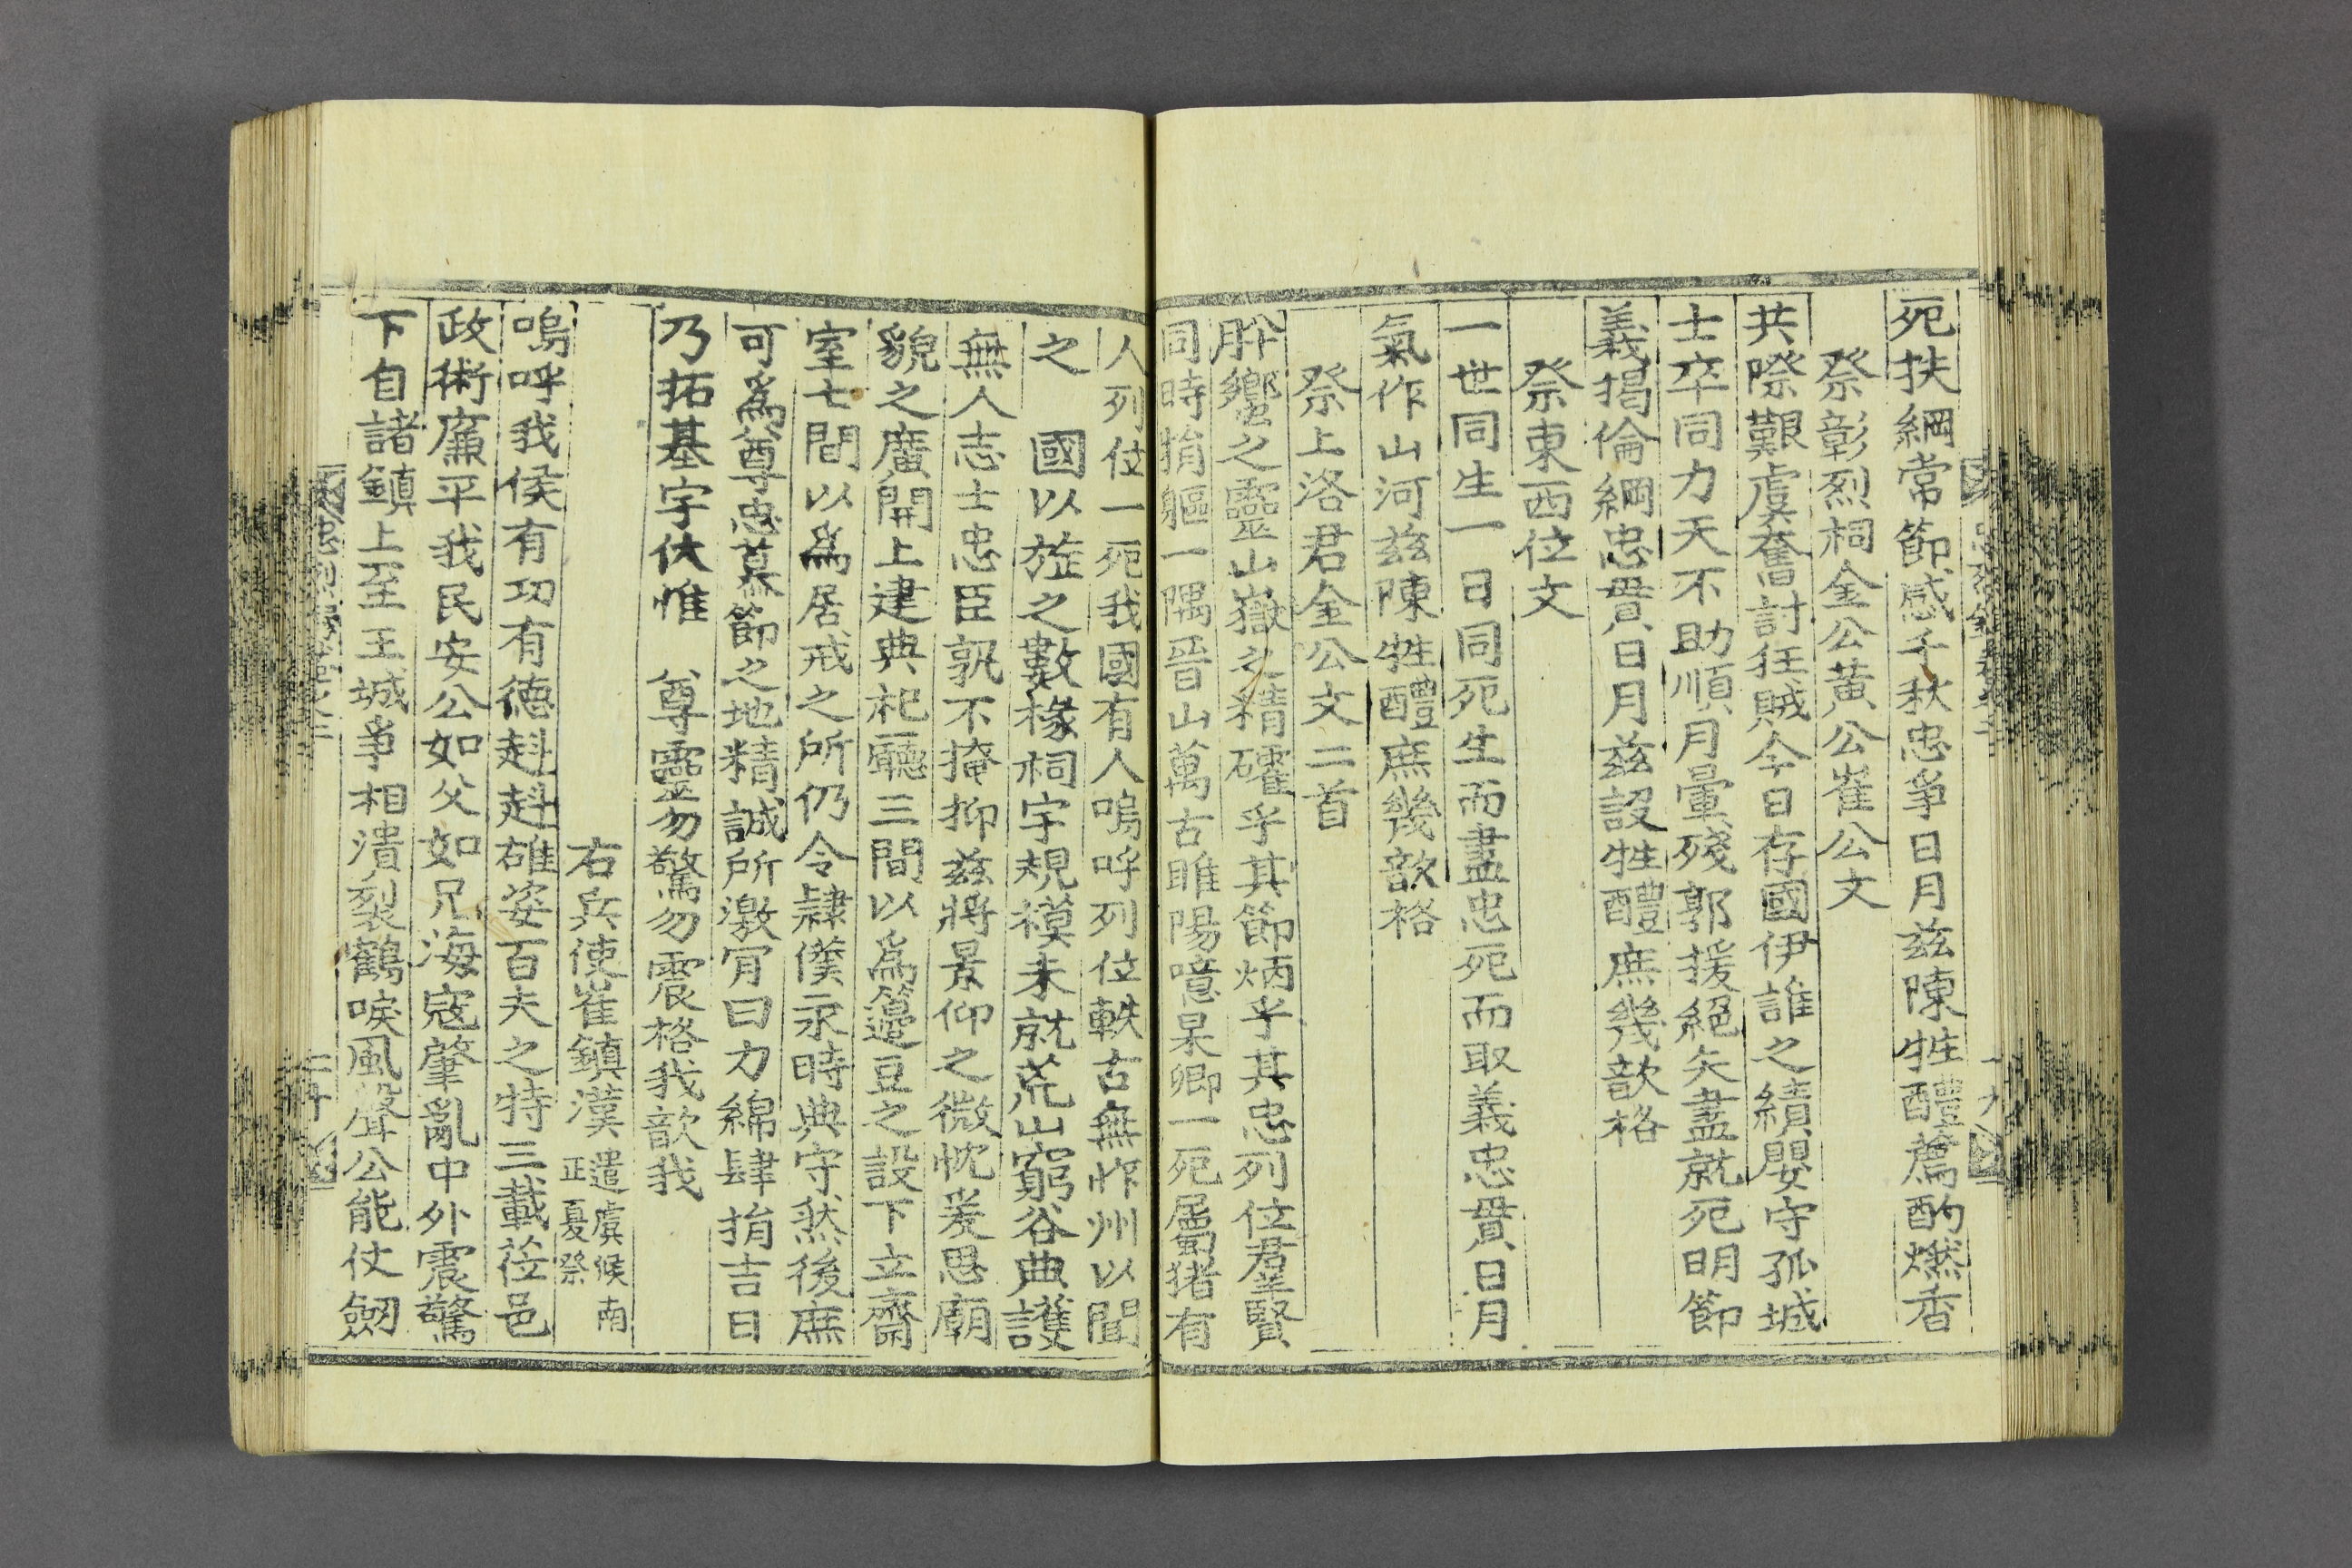 死扶綱常節感千秋忠爭日月玆陳牲醴薦酌燃香
祭彰烈祠金公黃公崔公文
共際艱虞奮討狂賊今日存國伊誰之績嬰守孤城
士卒同力天不助順月暈殘郭援絕矢盡就死明節
義揭倫綱忠貫日月玆設牲醴庶幾歆格
祭東西位文
一世同生一日同死生而盡忠死而取義忠貫日月
氣作山河玆陳牲醴庶幾歆格
祭上洛君金公文二首
肸蠁之靈山嶽之精確乎其節炳乎其忠列位羣賢
同時捐軀一隅晉山萬古睢陽噫杲卿一死屬猪有
人列位一死我國有人嗚呼列位軼古無怍州以聞
之 國以旌之數椽祠宇規模未就荒山窮谷典護
無人志士忠臣孰不掩抑玆將景仰之微忱爰思廟
貌之廣開上建典祀廳三間以爲籩豆之設下立齋
室七間以爲居戒之所仍令隷僕永時典守然後庶
可爲尊忠慕節之地精誠所激冐曰力綿肆捎吉日
乃拓基宇伏惟 尊靈勿驚勿震格我歆我
右兵使崔鎮漢 遣虞候南
正夏祭
嗚呼我侯有功有德赳赳雄姿百夫之特三載莅邑
政術廉平我民安公如父如兄海寇肇亂中外震驚
下自諸鎮上至王城爭相潰裂鶴唳風聲公能仗劒
二十